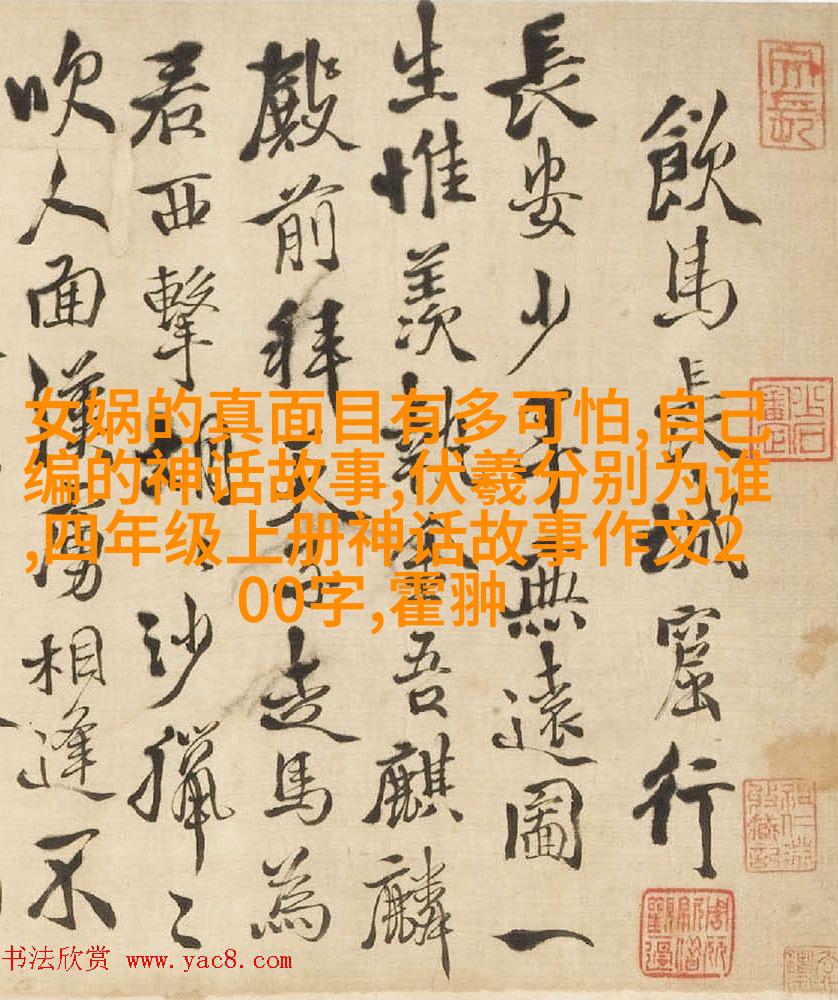 飲馬長城窟行
長安少年無遠圖一
生惟羨執金吾麒麟
殿前拜天子走馬為
君西擊胡〻沙獵〻
吹人面漢虜相逢不
女娲的真面目有多可怕,自己
编的神话故事,伏羲分别为谁
,四年级上册神话故事作文2
00字,霍翀
书法欣赏 www.yac8.com